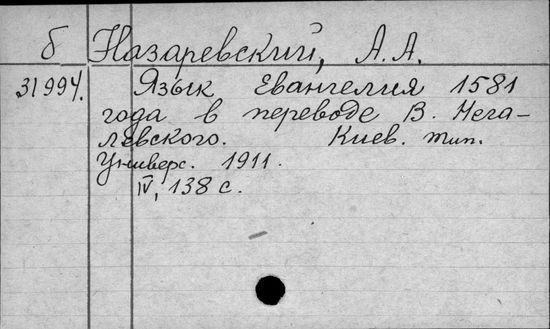 б Назаревский, А.А.
31994. Язык Евангелия 1581
года в переводе В. Нега-
левского. Киев. тип.
Универс. 1911.
IV, 138 с.